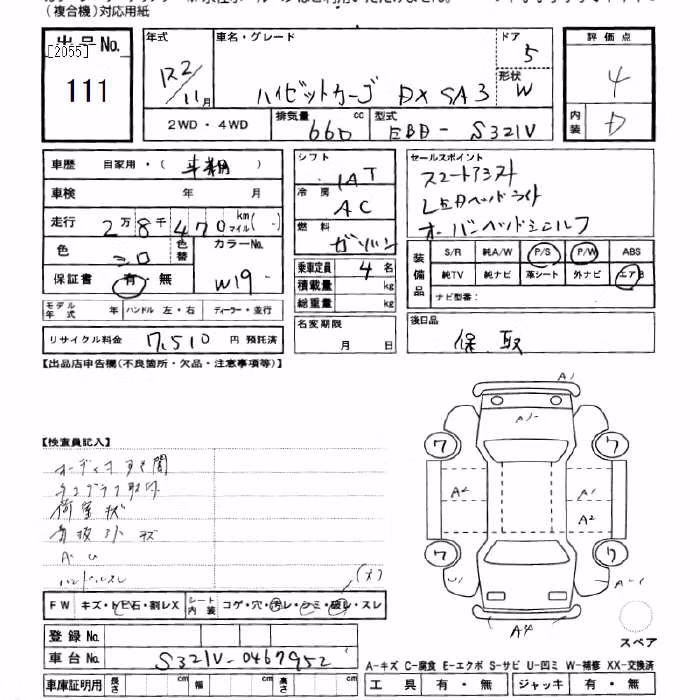 (複合機)対応用紙
出品No.
[2055]
111
年式
R2/11月
車名・グレード
ハイゼットカーゴ DX SA3
ドア
5
形状
W
評価点
4
内装
D
2WD・4WD
排気量
660 cc
型式
EBD-S321V
車歴 自家用・( )
車検 年 月
走行 2万8千470km マイル( )
色
シロ
色替
カラーNo.
W19
保証書 有・無
モデル年式 年 ハンドル 左・右 ディーラー・並行
リサイクル料金 7,510 円 預託済
シフト
IAT
冷房
AC
燃料
ガソリン
乗車定員 4 名
積載量 kg
総重量 kg
名変期限
月 日
セールスポイント
スマートアシスト
LEDヘッドライト
オーバーヘッドシェルフ
装備品
S/R 純A/W P/S P/W ABS
純TV 純ナビ 革シート 外ナビ エアB
ナビ型番:
後日品
保 取
【出品店申告欄(不良箇所・欠品・注意事項等)】
【検査員記入】
荷室 状
AU
ハンドルスレ
FW キズ・トビ石・割レX
シート内装 コゲ・穴・汚レ・シミ・破レ・スレ
(大)
登録No.
車台No. S321V-0467952
車庫証明用 長さ cm 幅 cm 高さ cm
A1
A1-
ワ ワ
A2 A1
A2
ワ ワ
U1 A-1
A4
スペア
A-キズ C-腐食 E-エクボ S-サビ U-凹ミ W-補修 XX-交換済
工具 有・無 ジャッキ 有・無